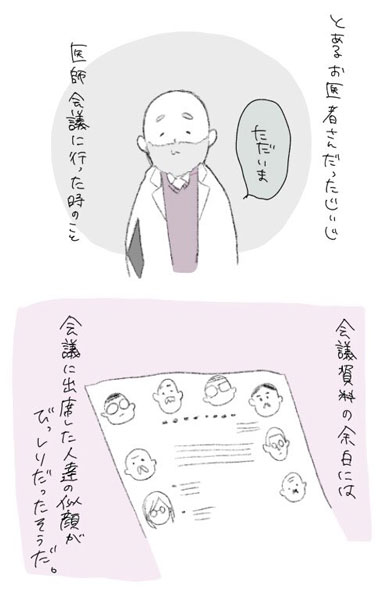 とあるお医者さんだったじいじ
ただいま
医師会議に行った時のこと
会議資料の余白には
会議に出席した人達の似顔が
びっしりだったそうだ。